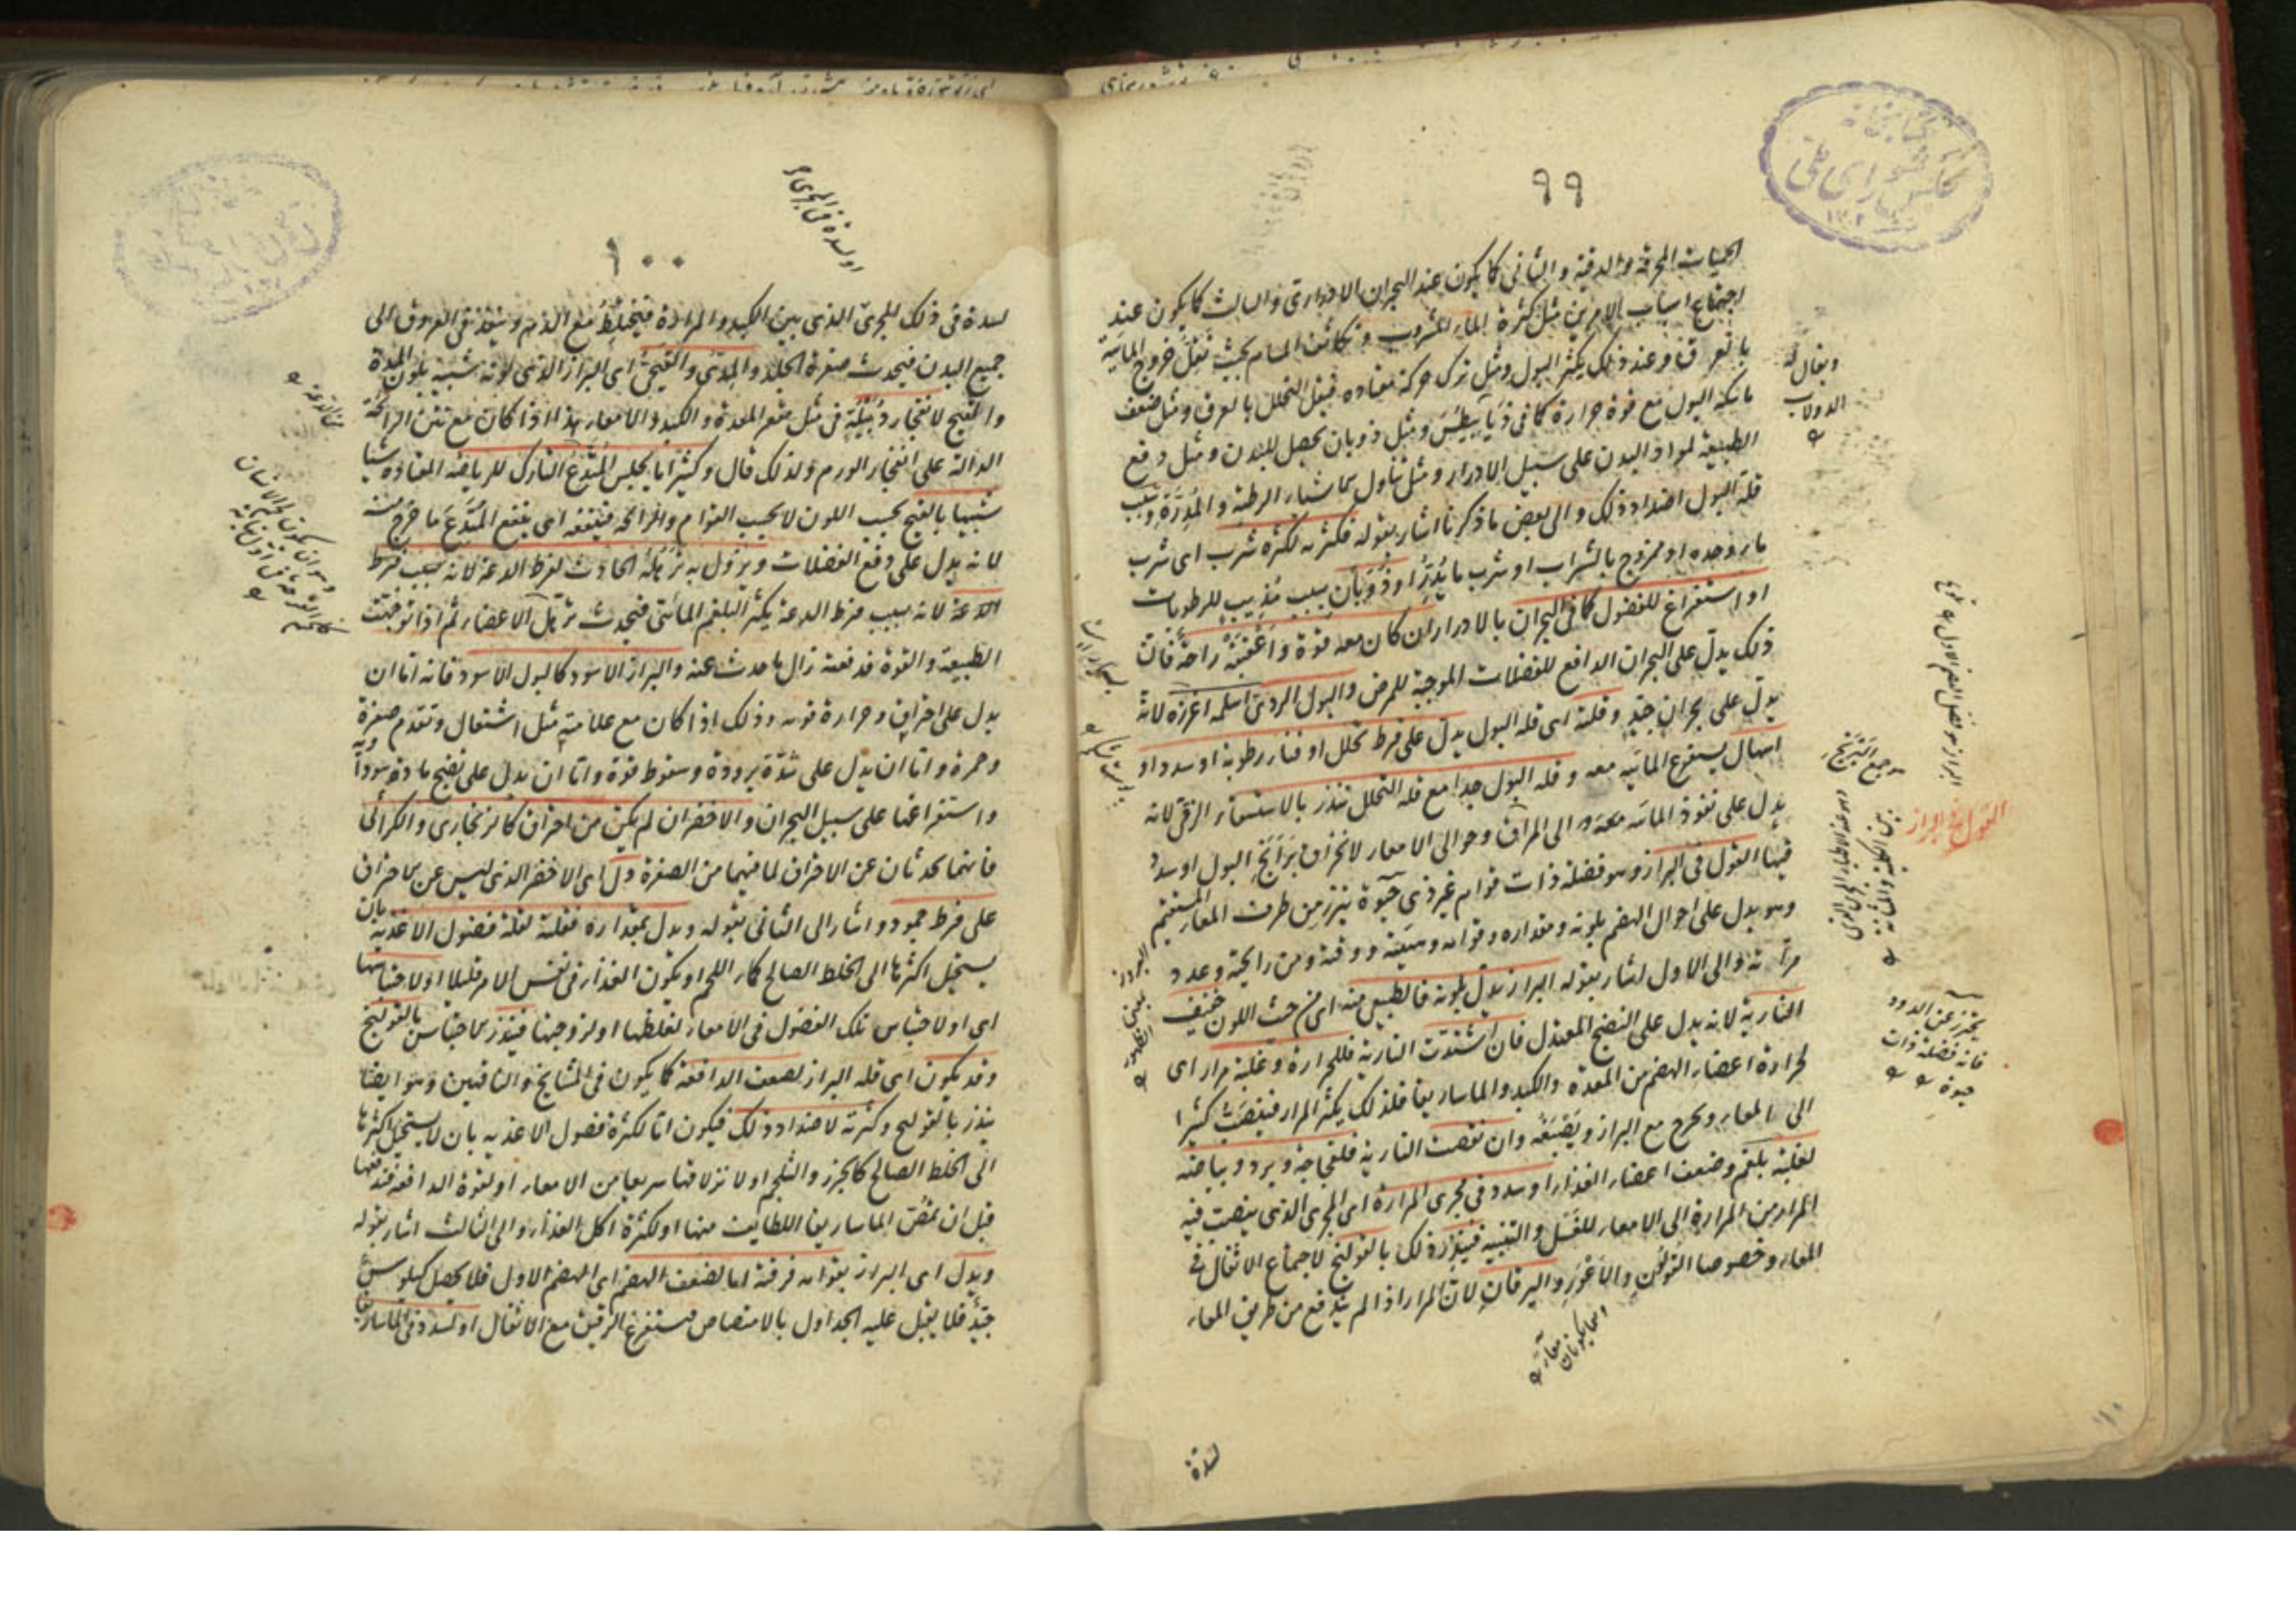 ٩٩
الحميات المحرقة والدقية والثانى كما يكون عند البحران الادرارى والثالث كما يكون عند
اجتماع اسباب الامرين مثل كثرة الماء المشروب و تكاثف المسام بحيث تقل خروج المائية
بالعرق وعند ذلك يكثر البول ومثل ترك حركة معتادة فيقل التحلل بالعرق ومثل ضعف
ماسكة البول مع قوة حرارة كما فى ذيابيطس ومثل ذوبان يحصل للبدن ومثل دفع
الطبيعة لمواد البدن على سبيل الادرار ومثل تناول الاشياء الرطبة والمدرة وسبب
قلة البول اضداد ذلك والى بعض ما ذكرنا اشار بقوله فكثرته لكثرة شرب اى شرب
ماء وحده او ممزوج بالشراب او شرب ما يدر او ذوبان بسبب مذيب للرطوبات
او استفراغ للفضول كما فى البحران بالادرار ان كان معه قوة و اعقبته راحة فان
ذلك يدل على البحران الدافع للفضلات الموجبة للمرض والبول الردى اسلمه اغزره لانه
يدل على بحران جيد وقلته اى قلة البول يدل على فرط تحلل او فناء رطوبة او سدد او
اسهال يستفرغ المائية معه وقلة البول جدا مع قلة التحلل تنذر بالاستسقاء الزقى لانه
يدل على نفوذ المائية الى المراق وحوالى الامعاء لانخراق برانخ البول او سدد
فيها القول فى البراز وهو فضلة ذات قوام غير ذى حيوة يبرز من طرف المعاء المستقيم
وهو يدل على احوال الهضم بلونه ومقداره وقوامه وهيئته ووقته ومن رائحته وعدد
مراته والى الاول اشار بقوله البراز يدل بلونه فالطبيعى منه اى من حيث اللون خفيف
النارية لانه يدل على النضج المعتدل فان اشتدت النارية فللحرارة وغلبة مرار اى
لحرارة اعضاء الهضم من المعدة والكبد والماساريقا فلذلك يكثر المرار فينصب كثيرا
الى المعاء ويخرج مع البراز ويصبغه وان نقصت النارية فلفجاجة وبرد وبياضه
لغلبة بلغم وضعف اعضاء الغذاء او سدد فى مجرى المرارة اى المجرى الذى ينصب فيه
المرار من المرارة الى الامعاء للغسل والتنبيه فينذر ذلك بالقولنج لاجتماع الاثقال فى
المعاء وخصوصا القولن والاعور واليرقان لان المرار اذا لم يندفع من طريق المعاء
لسدة
ويقال له
الدولاب
القول فى البراز
يحترز عن الدود
فانه فضلة ذات
حيوة
١٠٠
او لسدة فى المجرى
لسدة فى ذلك المجرى الذى بين الكبد والمرارة فيختلط مع الدم وينفذ فى العروق الى
جميع البدن فيحدث صفرة الجلد والمدى والقيحى اى البراز الذى لونه شبيه بلون المدة
والقيح لانفجار دبيلة فى مثل مقعر المعدة والكبد والامعاء هذا اذا كان مع نتن الرائحة
الدالة على انفجار الورم ولذلك قال وكثيرا ما يجلس المتدع التارك للرياضة المعتادة شيئا
شبيها بالقيح بحسب اللون لا بحسب القوام والرائحة فينفعه اى ينفع المتدع ما خرج منه
لانه يدل على دفع الفضلات ويزول به ترهله الحادث لفرط الدعة لانه بسبب فرط
الدعة لانه بسبب فرط الدعة يكثر البلغم المائى فيحدث ترهل الاعضاء ثم اذا توجهت
الطبيعة والقوة فدفعته زال ما حدث عنه والبراز الاسود كالبول الاسود فانه اما ان
يدل على احتراق وحرارة قوية وذلك اذا كان مع علامة مثل اشتعال وتقدم صفرة
وحمرة واما ان يدل على شدة برودة وسقوط قوة واما ان يدل على نضج مادة سوداوية
واستفراغها على سبيل البحران والاخضر ان لم يكن من احتراق كالزنجارى والكراثى
فانهما يحدثان عن الاحتراق لما فيهما من الصفرة دل اى الاخضر الذى ليس عن الاحتراق
على فرط جمود واشار الى الثانى بقوله ويدل بمقداره فقلته لقلة فضول الاغذية بان
يستحيل اكثرها الى الخلط الصالح كماء اللحم او يكون الغذاء فى نفس الامر قليلا او لاحتباسها
اى او لاحتباس تلك الفضول فى الامعاء لغلظها او لزوجتها فينذر الاحتباس بالقولنج
وقد يكون اى قلة البراز لضعف الدافعة كما يكون فى المشايخ والناقهين وهو ايضا
ينذر بالقولنج وكثرته لاضداد ذلك فيكون اما لكثرة فضول الاغذية بان لا يستحيل اكثرها
الى الخلط الصالح كالجزر والشلجم او لانزلاقها سريعا من الامعاء او لقوة الدافعة فتدفعها
قبل ان تمص الماساريقا اللطايف منها او لكثرة اكل الغذاء والى الثالث اشار بقوله
ويدل اى البراز بقوامه فرقته اما لضعف الهضم اى الهضم الاول فلا يحصل كيلوس
جيد فلا يقبل عليه الجداول بالامتصاص فيستفرغ الرقيق مع الاثقال او لسدد فى الماساريقا